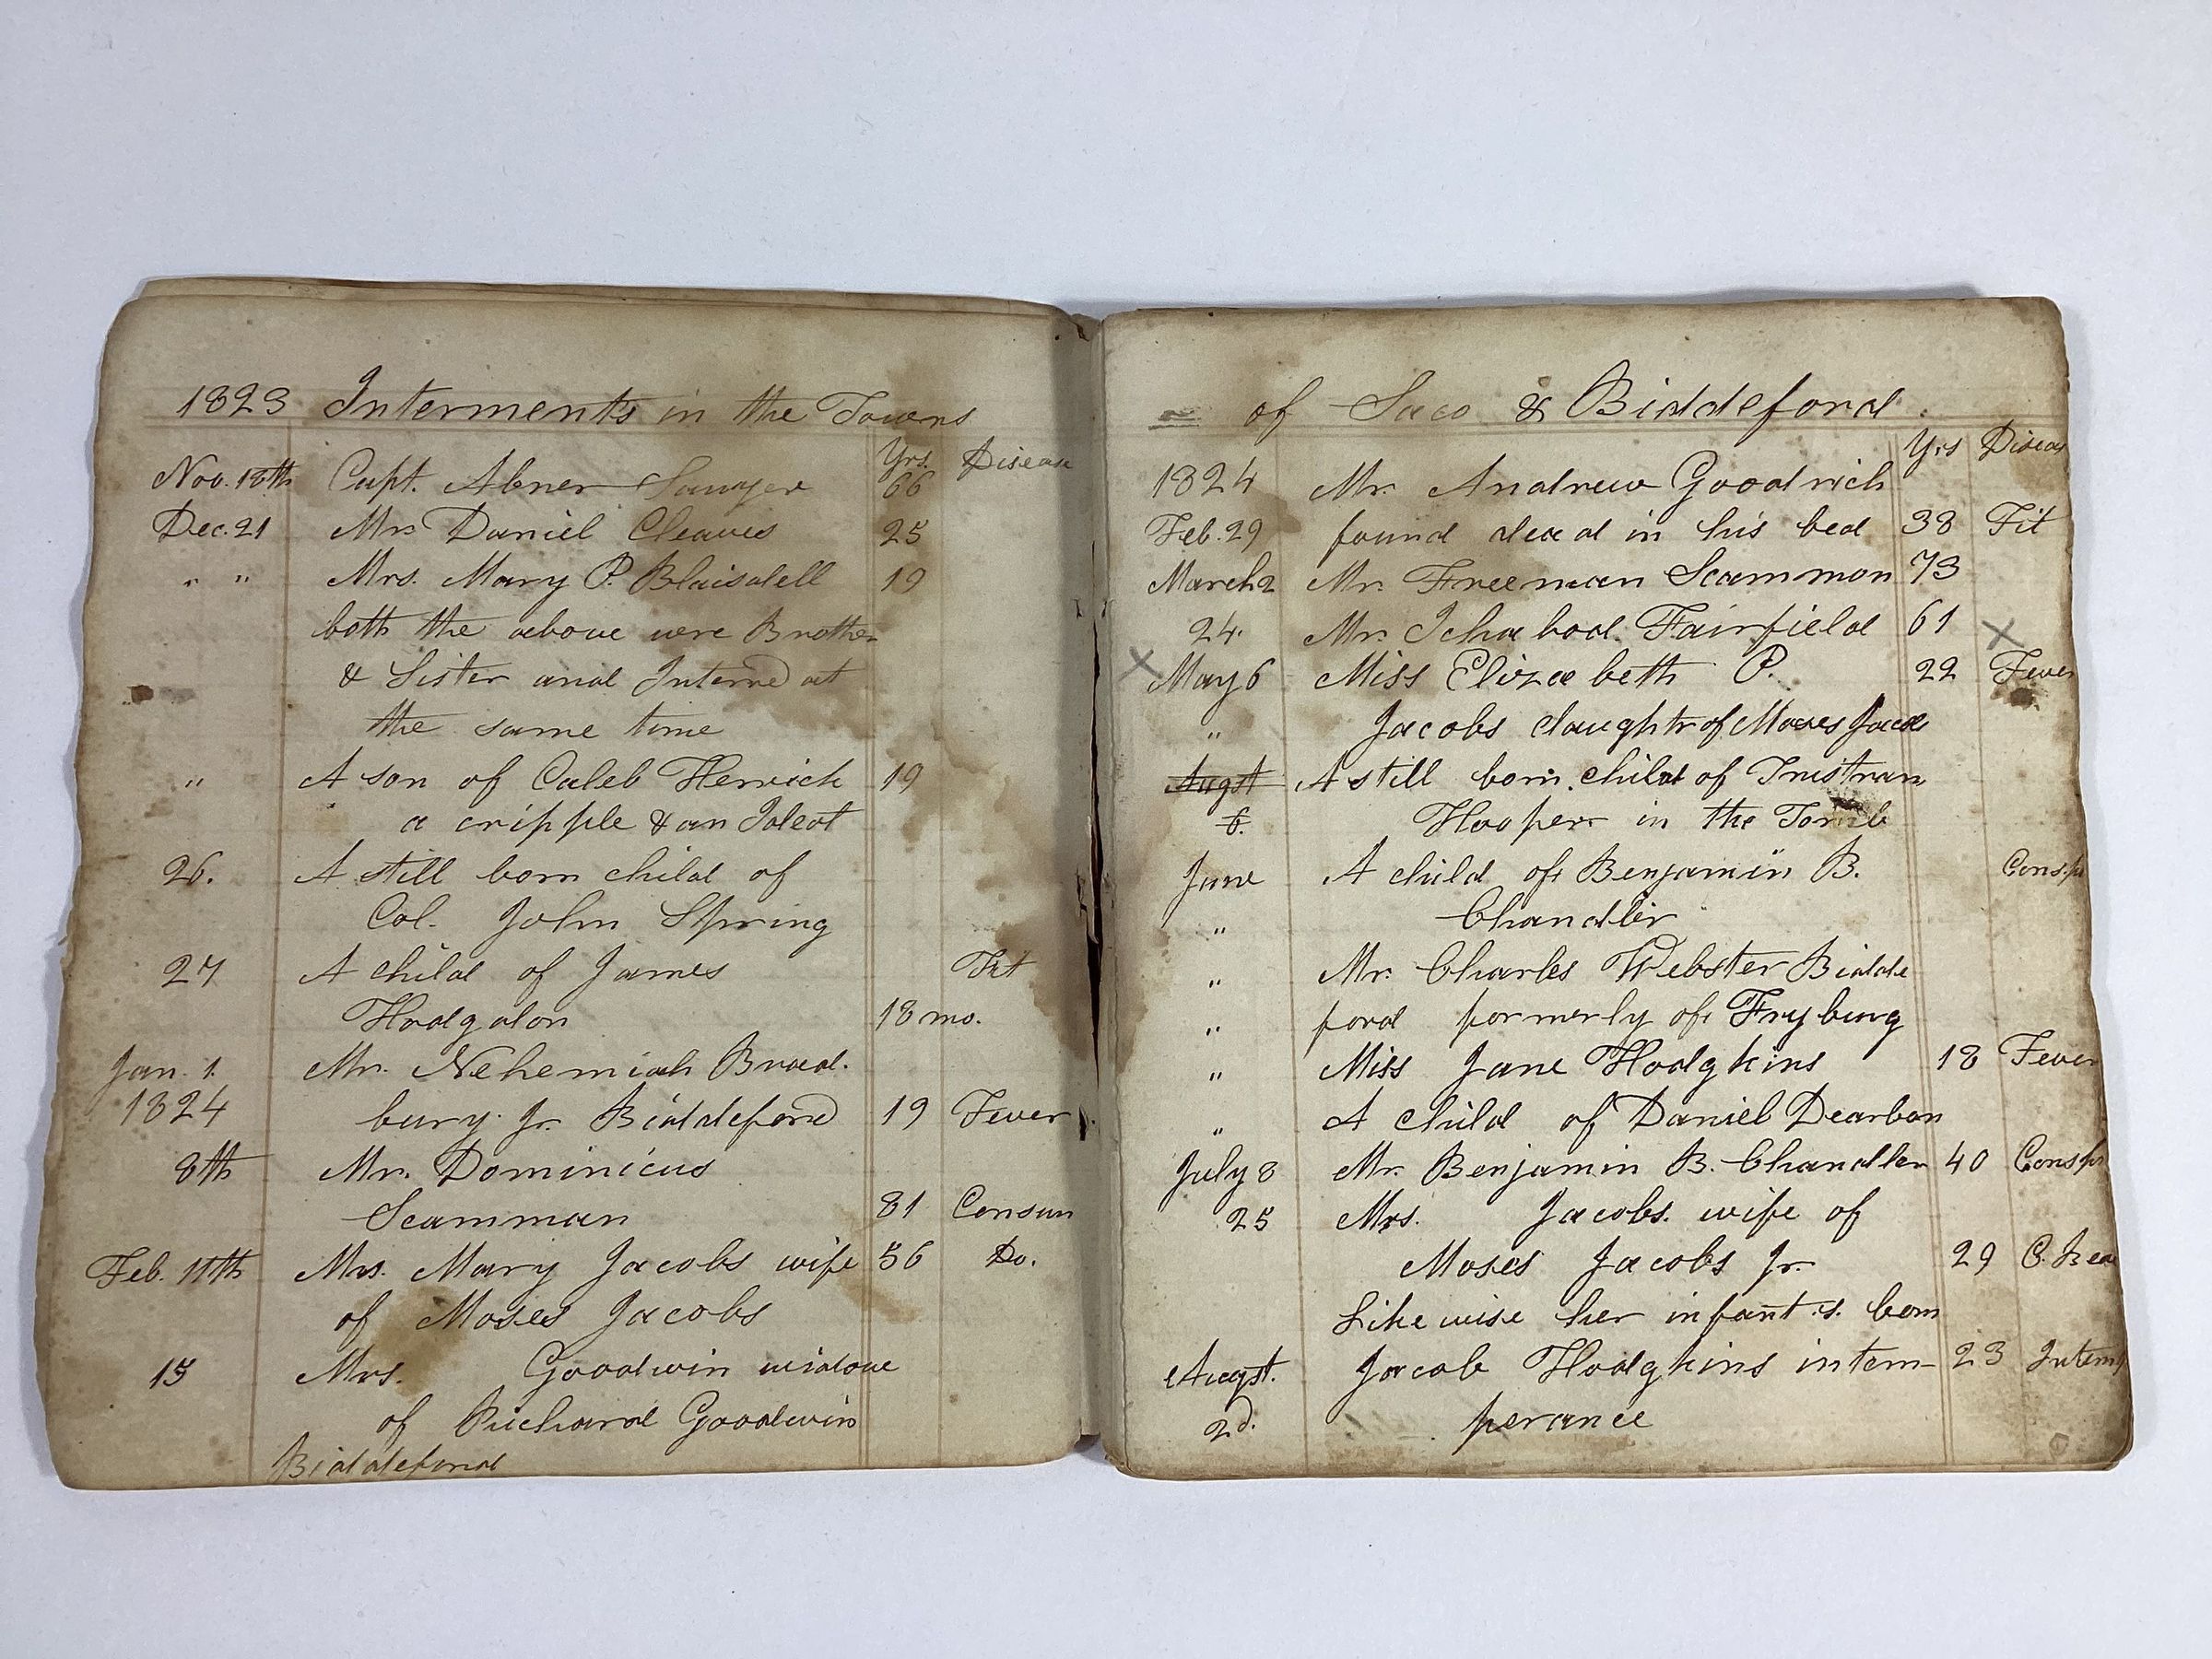 1823 Interments in the Towns
Yrs. Disease
Nov. 18th Capt. Abner Sawyer 66
Dec. 21 Mr. Daniel Cleaves 25
" " Mrs. Mary P. Blaisdell 19
both the above were Brother
& Sister and Interred at
the same time
" A son of Caleb Herrick 19
a cripple & an Ideot
26. A still born child of
Col. John Spring
27 A child of James Fit
Hodgdon 18 mo.
Jan. 1. Mr. Nehemiah Brad.
1824 bury Jr. Biddeford 19 Fever
8th Mr. Dominicus
Scamman 81 Consum
Feb. 11th Mrs. Mary Jacobs wife 56 Do.
of Moses Jacobs
15 Mrs. Goodwin widow
of Richard Goodwin
Biddeford
of Saco & Biddeford.
Yrs Diseas
1824 Mr. Andrew Goodrich
Feb. 29 found dead in his bed 38 Fit
March 2 Mr. Freeman Scammon 73
24. Mr. Ichabod Fairfield 61 x
x May 6 Miss Elizabeth P. 22 Fever
" Jacobs daughtr of Moses Jacobs
Augst A still born child of Tristram
6. Hooper in the Tomb
June A child of Benjamin B. Cons.p
" Chandler
" Mr. Charles Webster Bidde
" ford formerly of Fryburg
" Miss Jane Hodgkins 18 Fever
" A child of Daniel Dearbon
July 8 Mr. Benjamin B. Chandler 40 Consp
25 Mrs. Jacobs. wife of
Moses Jacobs Jr. 29 C. Bea
Likewise her infant s. born
Augst. Jacob Hodgkins intem- 23 Intem
2d. perance